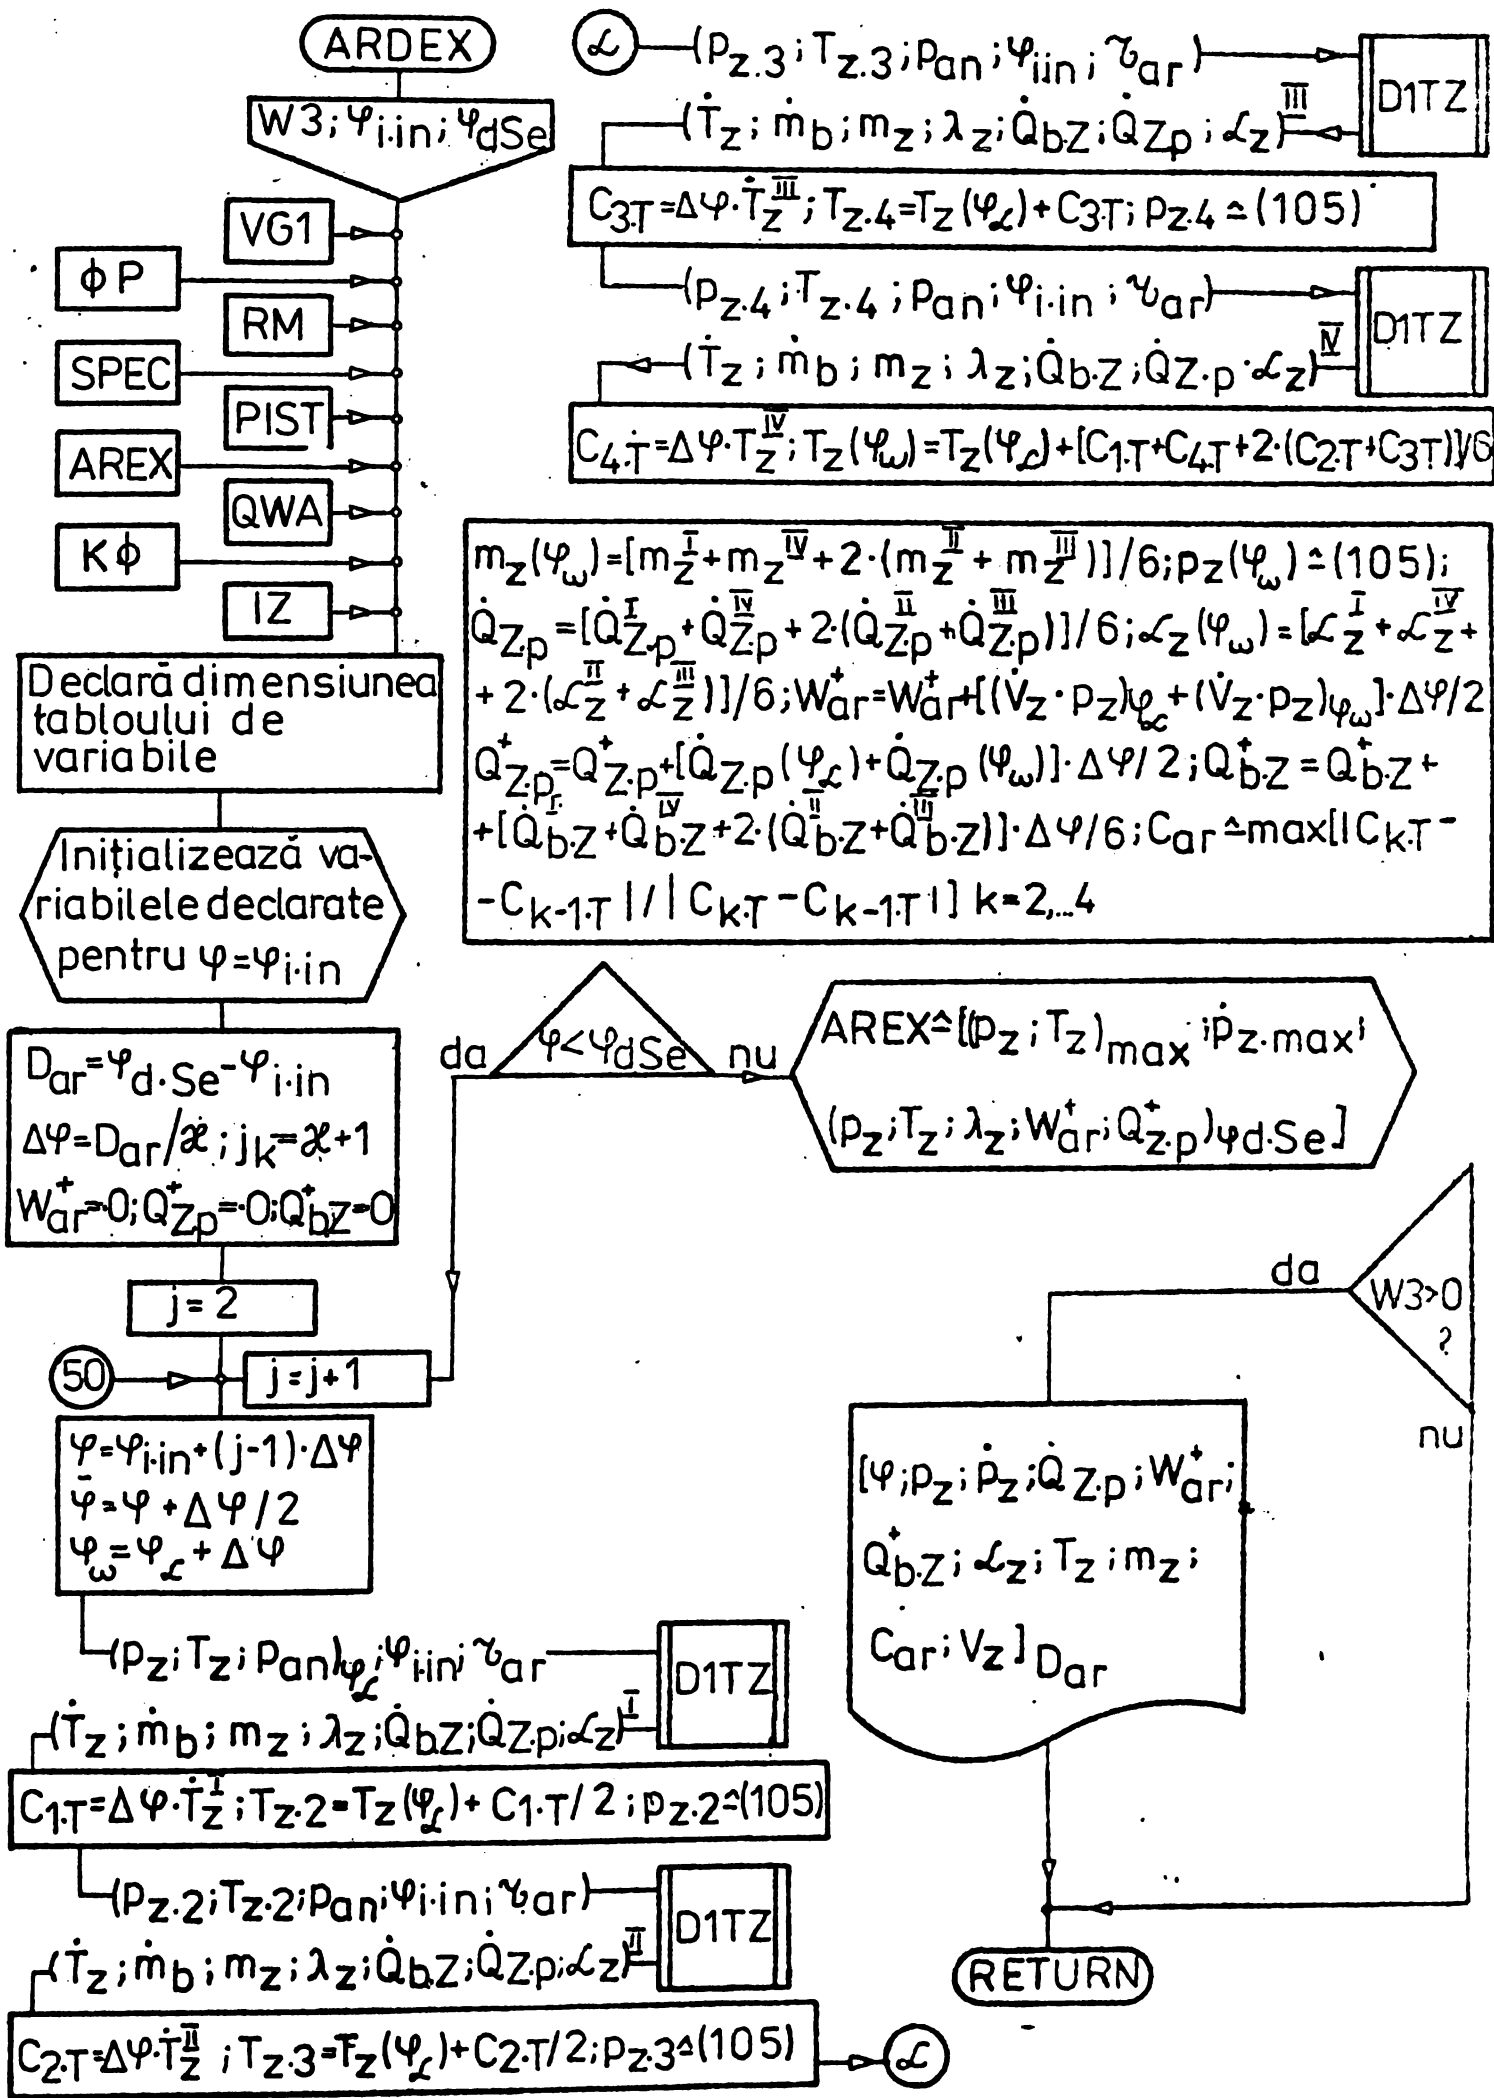 ARDEX
W3; φi.in; φdSe
VG1
ϕP
RM
SPEC
PIST
AREX
QWA
Kϕ
IZ
Declară dimensiunea
tabloului de
variabile
Inițializează va-
riabilele declarate
pentru φ=φi.in
Dar=φd.Se-φi.in
Δφ=Dar/ϰ; jk=ϰ+1
W⁺ar=0; Q⁺Z.p=0; Q⁺b.Z=0
j=2
50
j=j+1
φ=φi.in+(j-1)·Δφ
φ̄=φ+Δφ/2
φω=φ𝓛+Δφ
(pz; Tz; pan)φ𝓛; φi.in; τar
D1TZ
(Ṫz; ṁb; mz; λz; Q̇b.Z; Q̇Z.p; 𝓛z)^I
C1.T=Δφ·Ṫz^I; Tz.2=Tz(φ𝓛)+C1.T/2; pz.2≙(105)
(pz.2; Tz.2; pan; φi.in; τar)
D1TZ
(Ṫz; ṁb; mz; λz; Q̇b.Z; Q̇Z.p; 𝓛z)^II
C2.T=Δφ·Ṫz^II; Tz.3=Tz(φ𝓛)+C2.T/2; pz.3≙(105)
𝓛
𝓛
(pz.3; Tz.3; pan; φi.in; τar)
D1TZ
(Ṫz; ṁb; mz; λz; Q̇b.Z; Q̇Z.p; 𝓛z)^III
C3.T=Δφ·Ṫz^III; Tz.4=Tz(φ𝓛)+C3.T; pz.4≙(105)
(pz.4; Tz.4; pan; φi.in; τar)
D1TZ
(Ṫz; ṁb; mz; λz; Q̇b.Z; Q̇Z.p·𝓛z)^IV
C4.T=Δφ·Ṫz^IV; Tz(φω)=Tz(φ𝓛)+[C1.T+C4.T+2·(C2.T+C3.T)]/6
mz(φω)=[mz^I+mz^IV+2·(mz^II+mz^III)]/6; pz(φω)≙(105);
Q̇Z.p=[Q̇Z.p^I+Q̇Z.p^IV+2·(Q̇Z.p^II+Q̇Z.p^III)]/6; 𝓛z(φω)=[𝓛z^I+𝓛z^IV+
+2·(𝓛z^II+𝓛z^III)]/6; W⁺ar=W⁺ar+[(V̇z·pz)φ𝓛+(V̇z·pz)φω]·Δφ/2
Q⁺Z.p=Q⁺Z.p+[Q̇Z.p(φ𝓛)+Q̇Z.p(φω)]·Δφ/2; Q⁺b.Z=Q⁺b.Z+
+[Q̇b.Z^I+Q̇b.Z^IV+2·(Q̇b.Z^II+Q̇b.Z^III)]·Δφ/6; Car≙max[|Ck.T-
-Ck-1.T|/|Ck.T-Ck-1.T|] k=2,...4
φ<φdSe
da
nu
AREX≙[(pz; Tz)max; ṗz.max;
(pz; Tz; λz; W⁺ar; Q⁺Z.p)φd.Se]
W3>0
?
da
nu
[φ; pz; ṗz; Q̇Z.p; W⁺ar;
Q⁺b.Z; 𝓛z; Tz; mz;
Car; Vz]Dar
RETURN